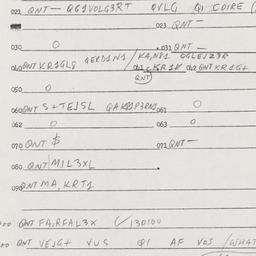 021 QNT- QG1VOLG3RT OVLG QI COIRE (
023 QNT-
030 O .031 QNT-
040 QNT KR1GLG GERD1N1/KAND1 GGLEJZ3R
QNT
042 QNT KR1G+
050 O
060 QNT S+TEJSL QAKRJP3RN1 061 O
062 O 063 O
070 QNT $ 072 QNT-
080 QNT MJL3XL
090 QNT MA, KRT1
QNT FAJRFAL3X (/130100
QNT VEJG+ VUS QI AF VOS /WHAT